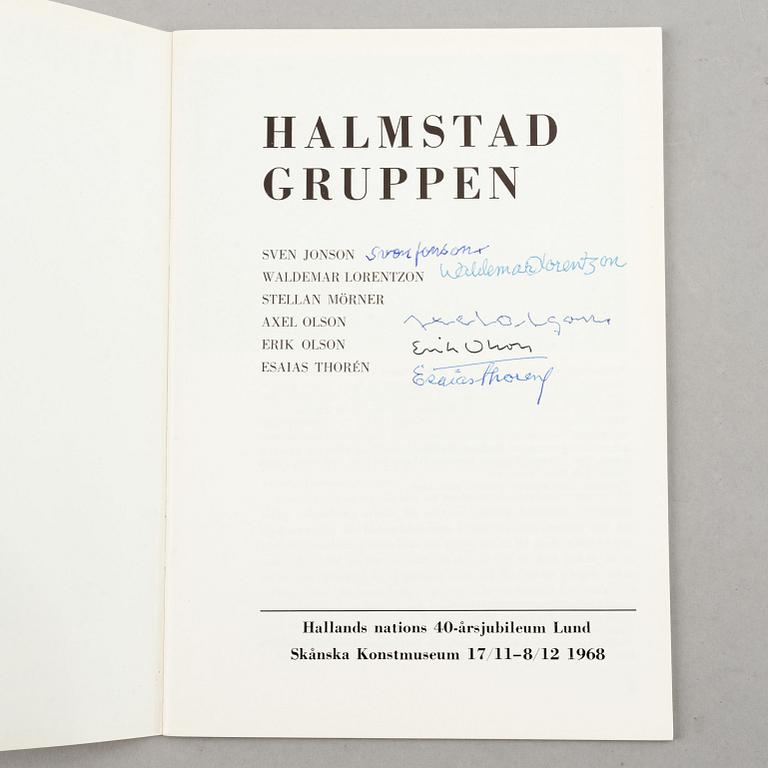 HALMSTAD
GRUPPEN
SVEN JONSON Sven Jonson
WALDEMAR LORENTZON Waldemar Lorentzon
STELLAN MÖRNER
AXEL OLSON Axel Olson
ERIK OLSON Erik Olson
ESAIAS THORÉN Esaias Thorén
Hallands nations 40-årsjubileum Lund
Skånska Konstmuseum 17/11–8/12 1968